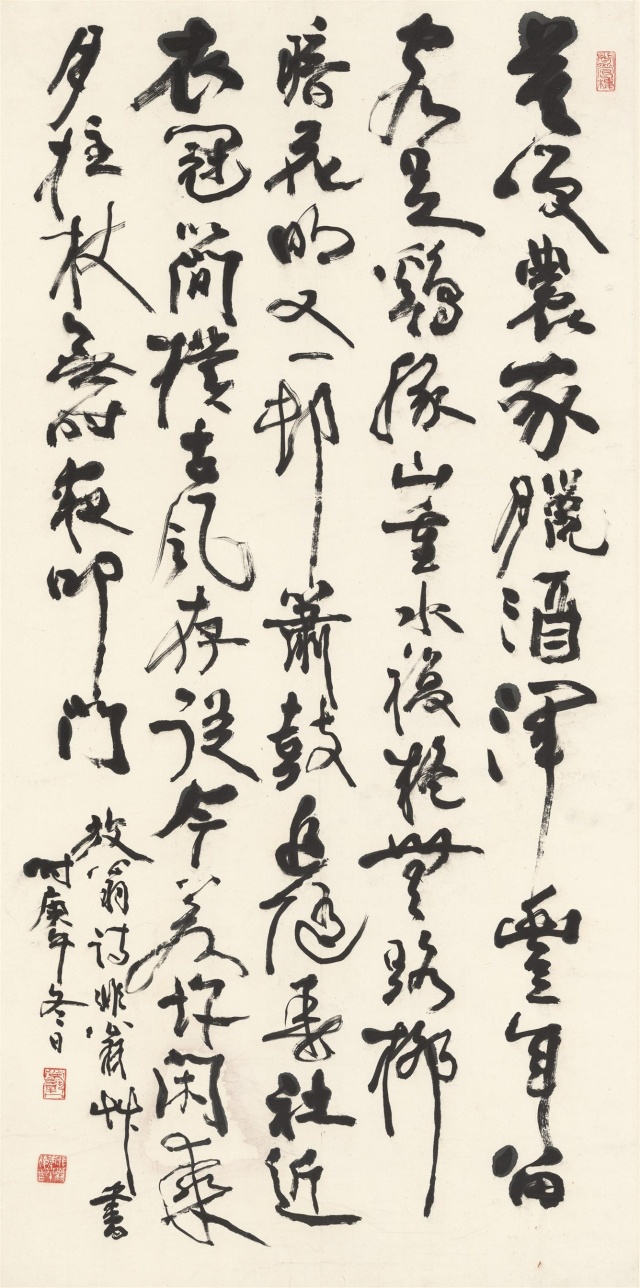 莫笑農家臘酒渾豐年留
客足鷄豚山重水複疑無路柳
暗花明又一邨簫鼓追隨春社近
衣冠簡樸古風存從今若許閑乘
月拄杖無時夜叩門
放翁詩 艸書
时庚午冬日